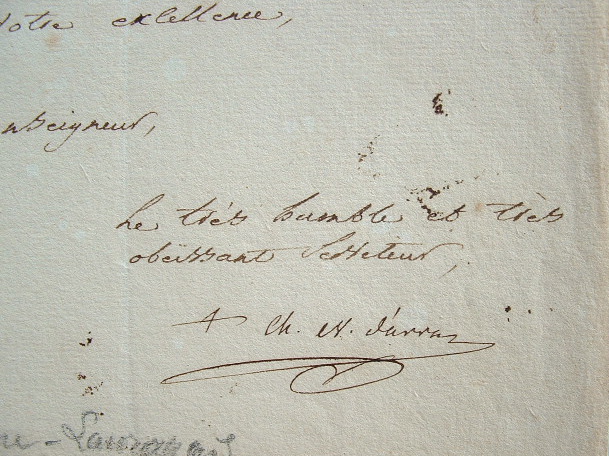 Votre excellence,
onseigneur,
Le très humble et très
obéissant Serviteur,
+ Ch. év. d'arras